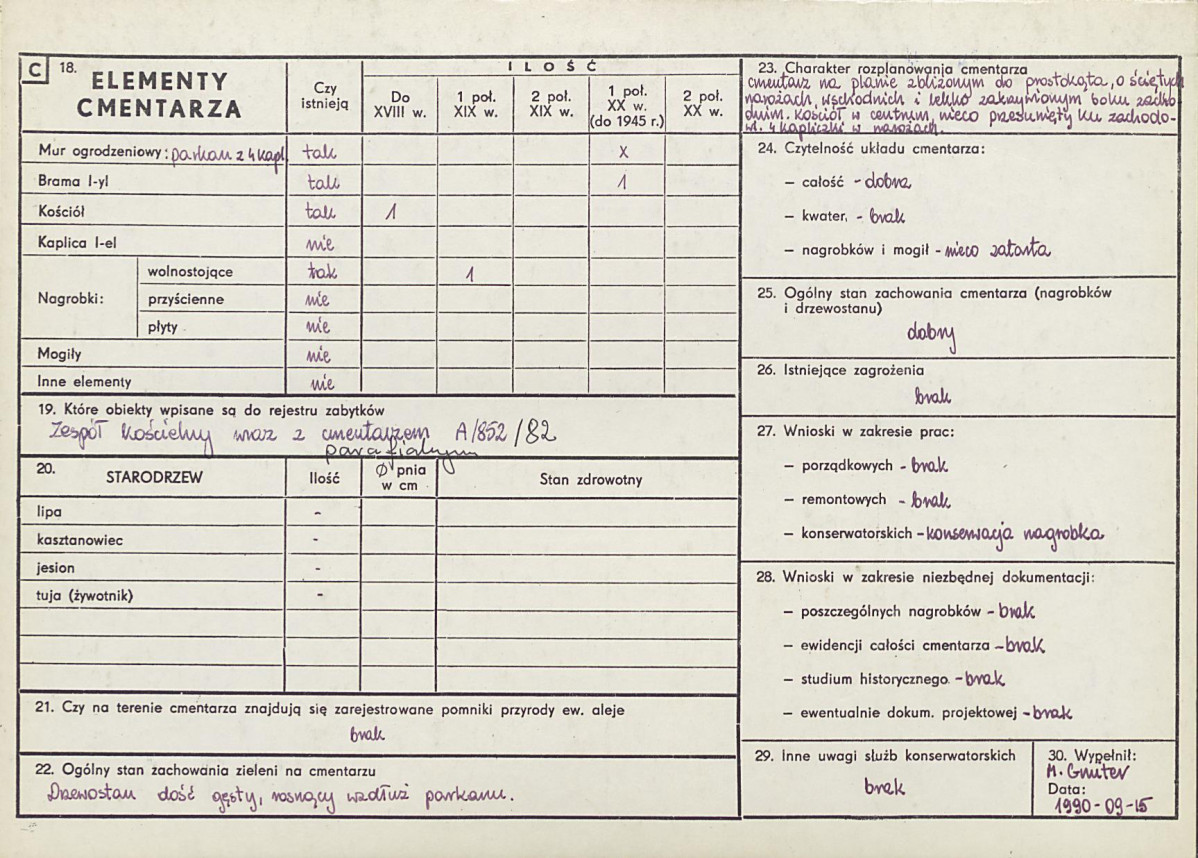 C 18. ELEMENTY CMENTARZA
Czy istnieją
ILOŚĆ
Do XVIII w.
1 poł. XIX w.
2 poł. XIX w.
1 poł. XX w. (do 1945 r.)
2 poł. XX w.
Mur ogrodzeniowy: parkan z 4 kapl tak X
Brama I-yl tak 1
Kościół tak 1
Kaplica I-el nie
Nagrobki:
wolnostojące tak 1
przyścienne nie
płyty nie
Mogiły nie
Inne elementy nie
19. Które obiekty wpisane są do rejestru zabytków
Zespół kościelny wraz z cmentarzem A/852/82
parafialnym
20. STARODRZEW
Ilość
Ø pnia w cm
Stan zdrowotny
lipa -
kasztanowiec -
jesion -
tuja (żywotnik) -
21. Czy na terenie cmentarza znajdują się zarejestrowane pomniki przyrody ew. aleje
brak
22. Ogólny stan zachowania zieleni na cmentarzu
Drzewostan dość gęsty, rosnący wzdłuż parkanu.
23. Charakter rozplanowania cmentarza
cmentarz na planie zbliżonym do prostokąta, o ściętych
narożach, wschodnich i lekko zakrzywionym boku zacho-
dnim. Kościół w centrum, nieco przesunięty ku zachodo-
wi. 4 kapliczki w narożach.
24. Czytelność układu cmentarza:
— całość - dobra
— kwater. - brak
— nagrobków i mogił - nieco zatarta
25. Ogólny stan zachowania cmentarza (nagrobków
i drzewostanu)
dobry
26. Istniejące zagrożenia
brak
27. Wnioski w zakresie prac:
— porządkowych - brak
— remontowych - brak
— konserwatorskich - konserwacja nagrobka
28. Wnioski w zakresie niezbędnej dokumentacji:
— poszczególnych nagrobków - brak
— ewidencji całości cmentarza - brak
— studium historycznego. - brak
— ewentualnie dokum. projektowej - brak
29. Inne uwagi służb konserwatorskich
brak
30. Wypełnił:
M. Gmuter
Data:
1990-09-15